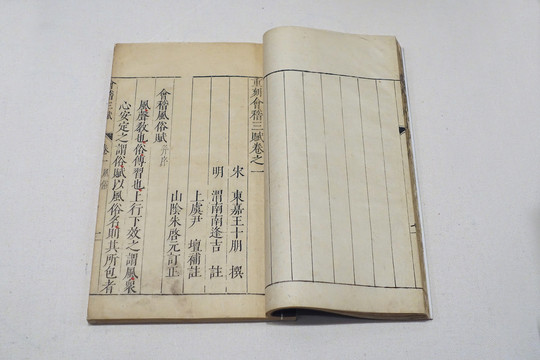 重刻會稽三賦卷之一
宋 東嘉王十朋 撰
明 渭南南逢吉 註
上虞尹 壇補註
山陰朱啓元訂正
會稽風俗賦 并序
風聲教也俗傳習也上行下效之謂風衆
心安定之謂俗賦以風俗名則其所包者
會稽三賦 卷一 風俗 二